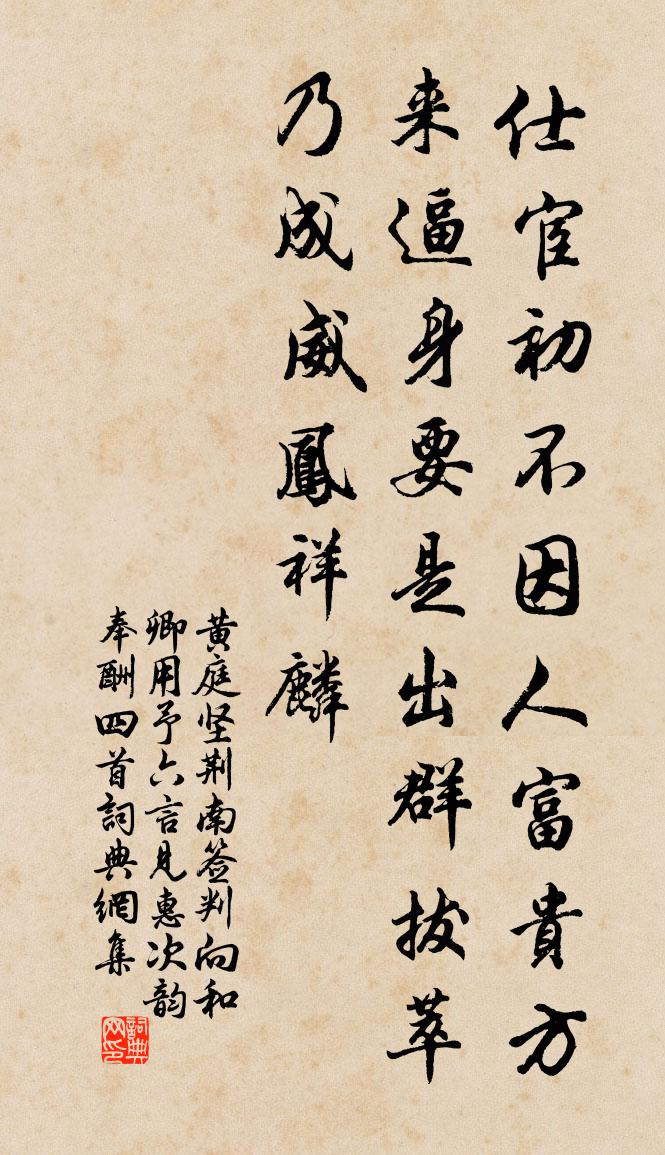 仕宦初不因人富貴方
来逼身要是出群拔萃
乃成威鳳祥麟
黄庭坚荆南签判向和
卿用予六言見惠次韵
奉酬四首詞典網集
詞典网印